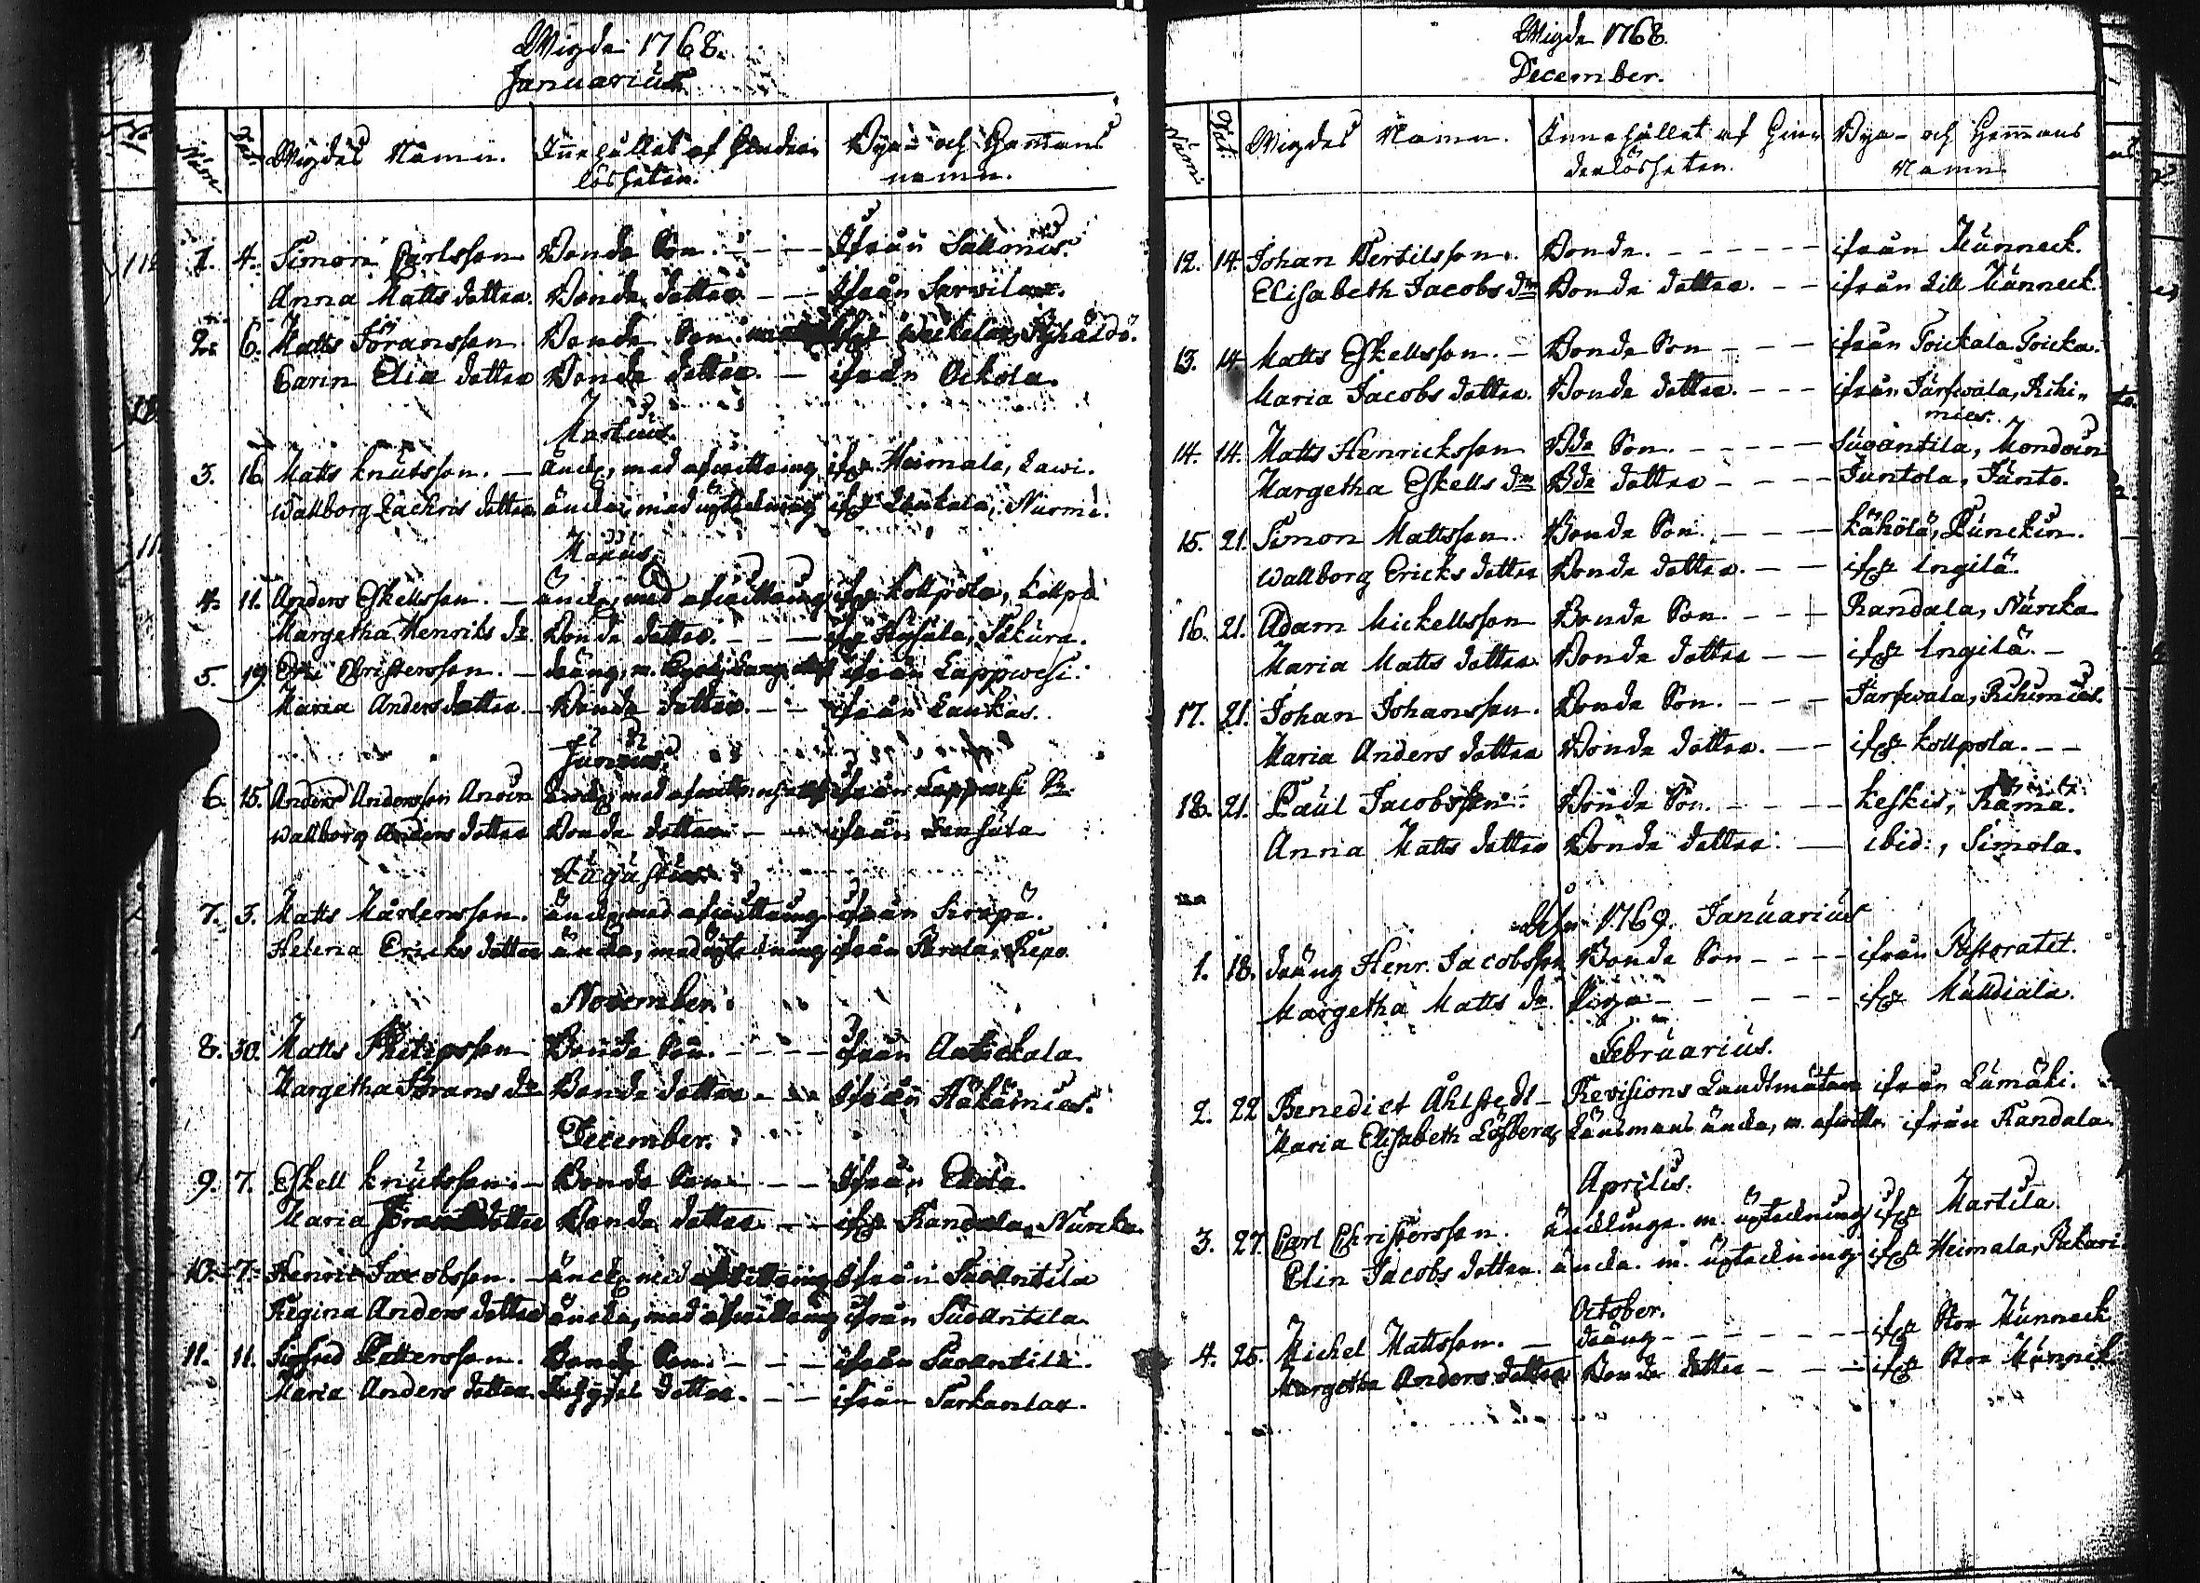 Wigde 1768.
Januarius
Num Dat Wigdes Namn. Innehållet af hinder- Bya- och Hemans
lösheten. namn.
1. 4. Simon Carlsson Bonde Son - - - ifrån Sallonis.
Anna Matts dotter. Bonde dotter - - ifrån Sarvilax.
2. 6. Matts Jöransson Bonde Son
Carin Elia dotter Bonde dotter. - ifrån Ockola.
Martius.
3. 16. Matts Knutsson. - änckl, med afwittring ifr Heimala, Lawi.
Wallborg Zachris dotter äncka, med upteckning ifr Nurmi.
Majus.
4. 11. Anders Eskellsson. - änckl, med afwittring ifr Kollpola, Kollpo
Margetha Henriks dr Bonde dotter. - - - ifr Sakura.
5. 19. Christersson. - dräng, m. ifrån Lappwesi.
Maria Anders dotter. - Bonde dotter. - - ifrån Laukas.
Junius.
6. 15. Anders Andersson änckl, med ifrån Lappwesi
Wallborg Anders dotter Bonde dotter - - ifrån
Augustus.
7. 3. Matts Mårtensson. änckl, med afwittring ifrån
Helena Ericks dotter äncka, med upteckning ifrån Repo.
November.
8. 30. Matts Philipsson Bonde Son. - - - - ifrån
Margetha Jörans dr Bonde dotter - - - ifrån Häkämies.
December.
9. 7. Eskell Knutsson. - Bonde Son - - - ifrån
Maria Jörans dotter Bonde dotter - - ifr Kandala, Nurcka.
10. 7. Henric Jacobsson. - änckl, med afwittring ifrån Suoantila
Regina Anders dotter äncka, med afwittring ifrån Suoantila.
11. 11. Sigfred Pettersson. Bonde Son. - - - ifrån Suoantila.
Maria Anders dotter. Inhyses dotter. - - ifrån Sarkanlax.
Wigde 1768.
December.
Num: Dat: Wigdes Namn. Innehållet af hin- Bya- och Hemans
derlösheten. Namn.
12. 14. Johan Bertilsson. Bonde. - - - - - ifrån Känneck.
Elisabeth Jacobs dr Bonde dotter. - - ifrån Lill Känneck.
13. 14. Matts Eskellsson. - Bonde Son - - - ifrån Toickala Toicka.
Maria Jacobs dotter. Bonde dotter. - - - ifrån Järfwäla, Rihi-
mies.
14. 14. Matts Henricksson Bde Son. - - - - Suoantila, Mondoin
Margetha Eskells dr Bde dotter - - - - Juntola, Junto.
15. 21. Simon Mattsson. Bonde Son. - - - Kähölä, Punckin.
Wallborg Ericks dotter Bonde dotter. - - ifr Ingilä.
16. 21. Adam Mickellsson Bonde Son. - - - Kandala, Nurcka
Maria Matts dotter Bonde dotter - - ifr Ingilä. -
17. 21. Johan Johansson. Bonde Son. - - - Järfwäla, Rihimies.
Maria Anders dotter Bonde dotter. - - ifr Kollpola. - -
18. 21. Paul Jacobsson. Bonde Son. - - - - Keskis, Rämä.
Anna Matts dotter Bonde dotter. - ibid:, Simola.
1769. Januarius
1. 18. dräng Henr. Jacobsson Bonde Son - - - - ifrån Pastoratet.
Margetha Matts dr. Piga - - - - - ifr
Februarius.
2. 22 Benedict Åhlstedt - Revisions Landtmätare ifrån Lumäki.
Maria Elisabeth Löfberg, Länsmans äncka, m. afwittr. ifrån Kandala.
Aprilis.
3. 27. Carl Christersson. äncklinge. m. upteckning ifr Martila.
Elin Jacobs dotter. äncka. m. upteckning ifr Heimala, Pekari
October.
4. 25. Michel Mattsson. - dräng - - - - - - ifr Stor Känneck
Margetha Anders dotter Bonde dotter - - - ifr Stor Känneck